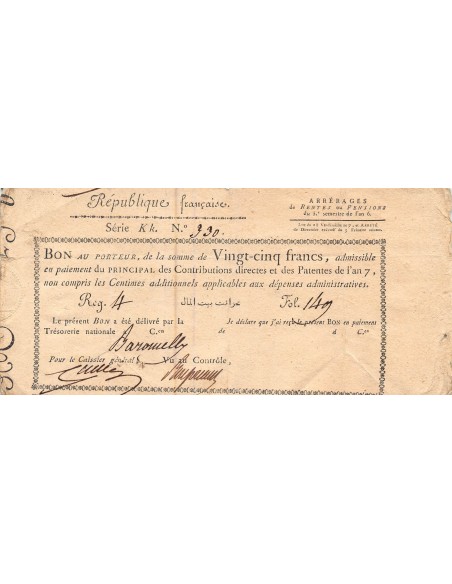 République française.
ARRÉRAGES
de RENTES ou PENSIONS
du 1.er semestre de l'an 6.
Série Kk. N.º 330.
BON AU PORTEUR, de la somme de Vingt-cinq francs, admissible
en paiement du PRINCIPAL des Contributions directes et des Patentes de l'an 7,
non compris les Centimes additionnels applicables aux dépenses administratives.
Reg. 4 بيت المال Fol. 149
Le présent BON a été délivré par la
Trésorerie nationale à C.en
Je déclare que j'ai reçu le présent BON en paiement
d à C.er
Pour le Caissier général,
Vu au Contrôle,